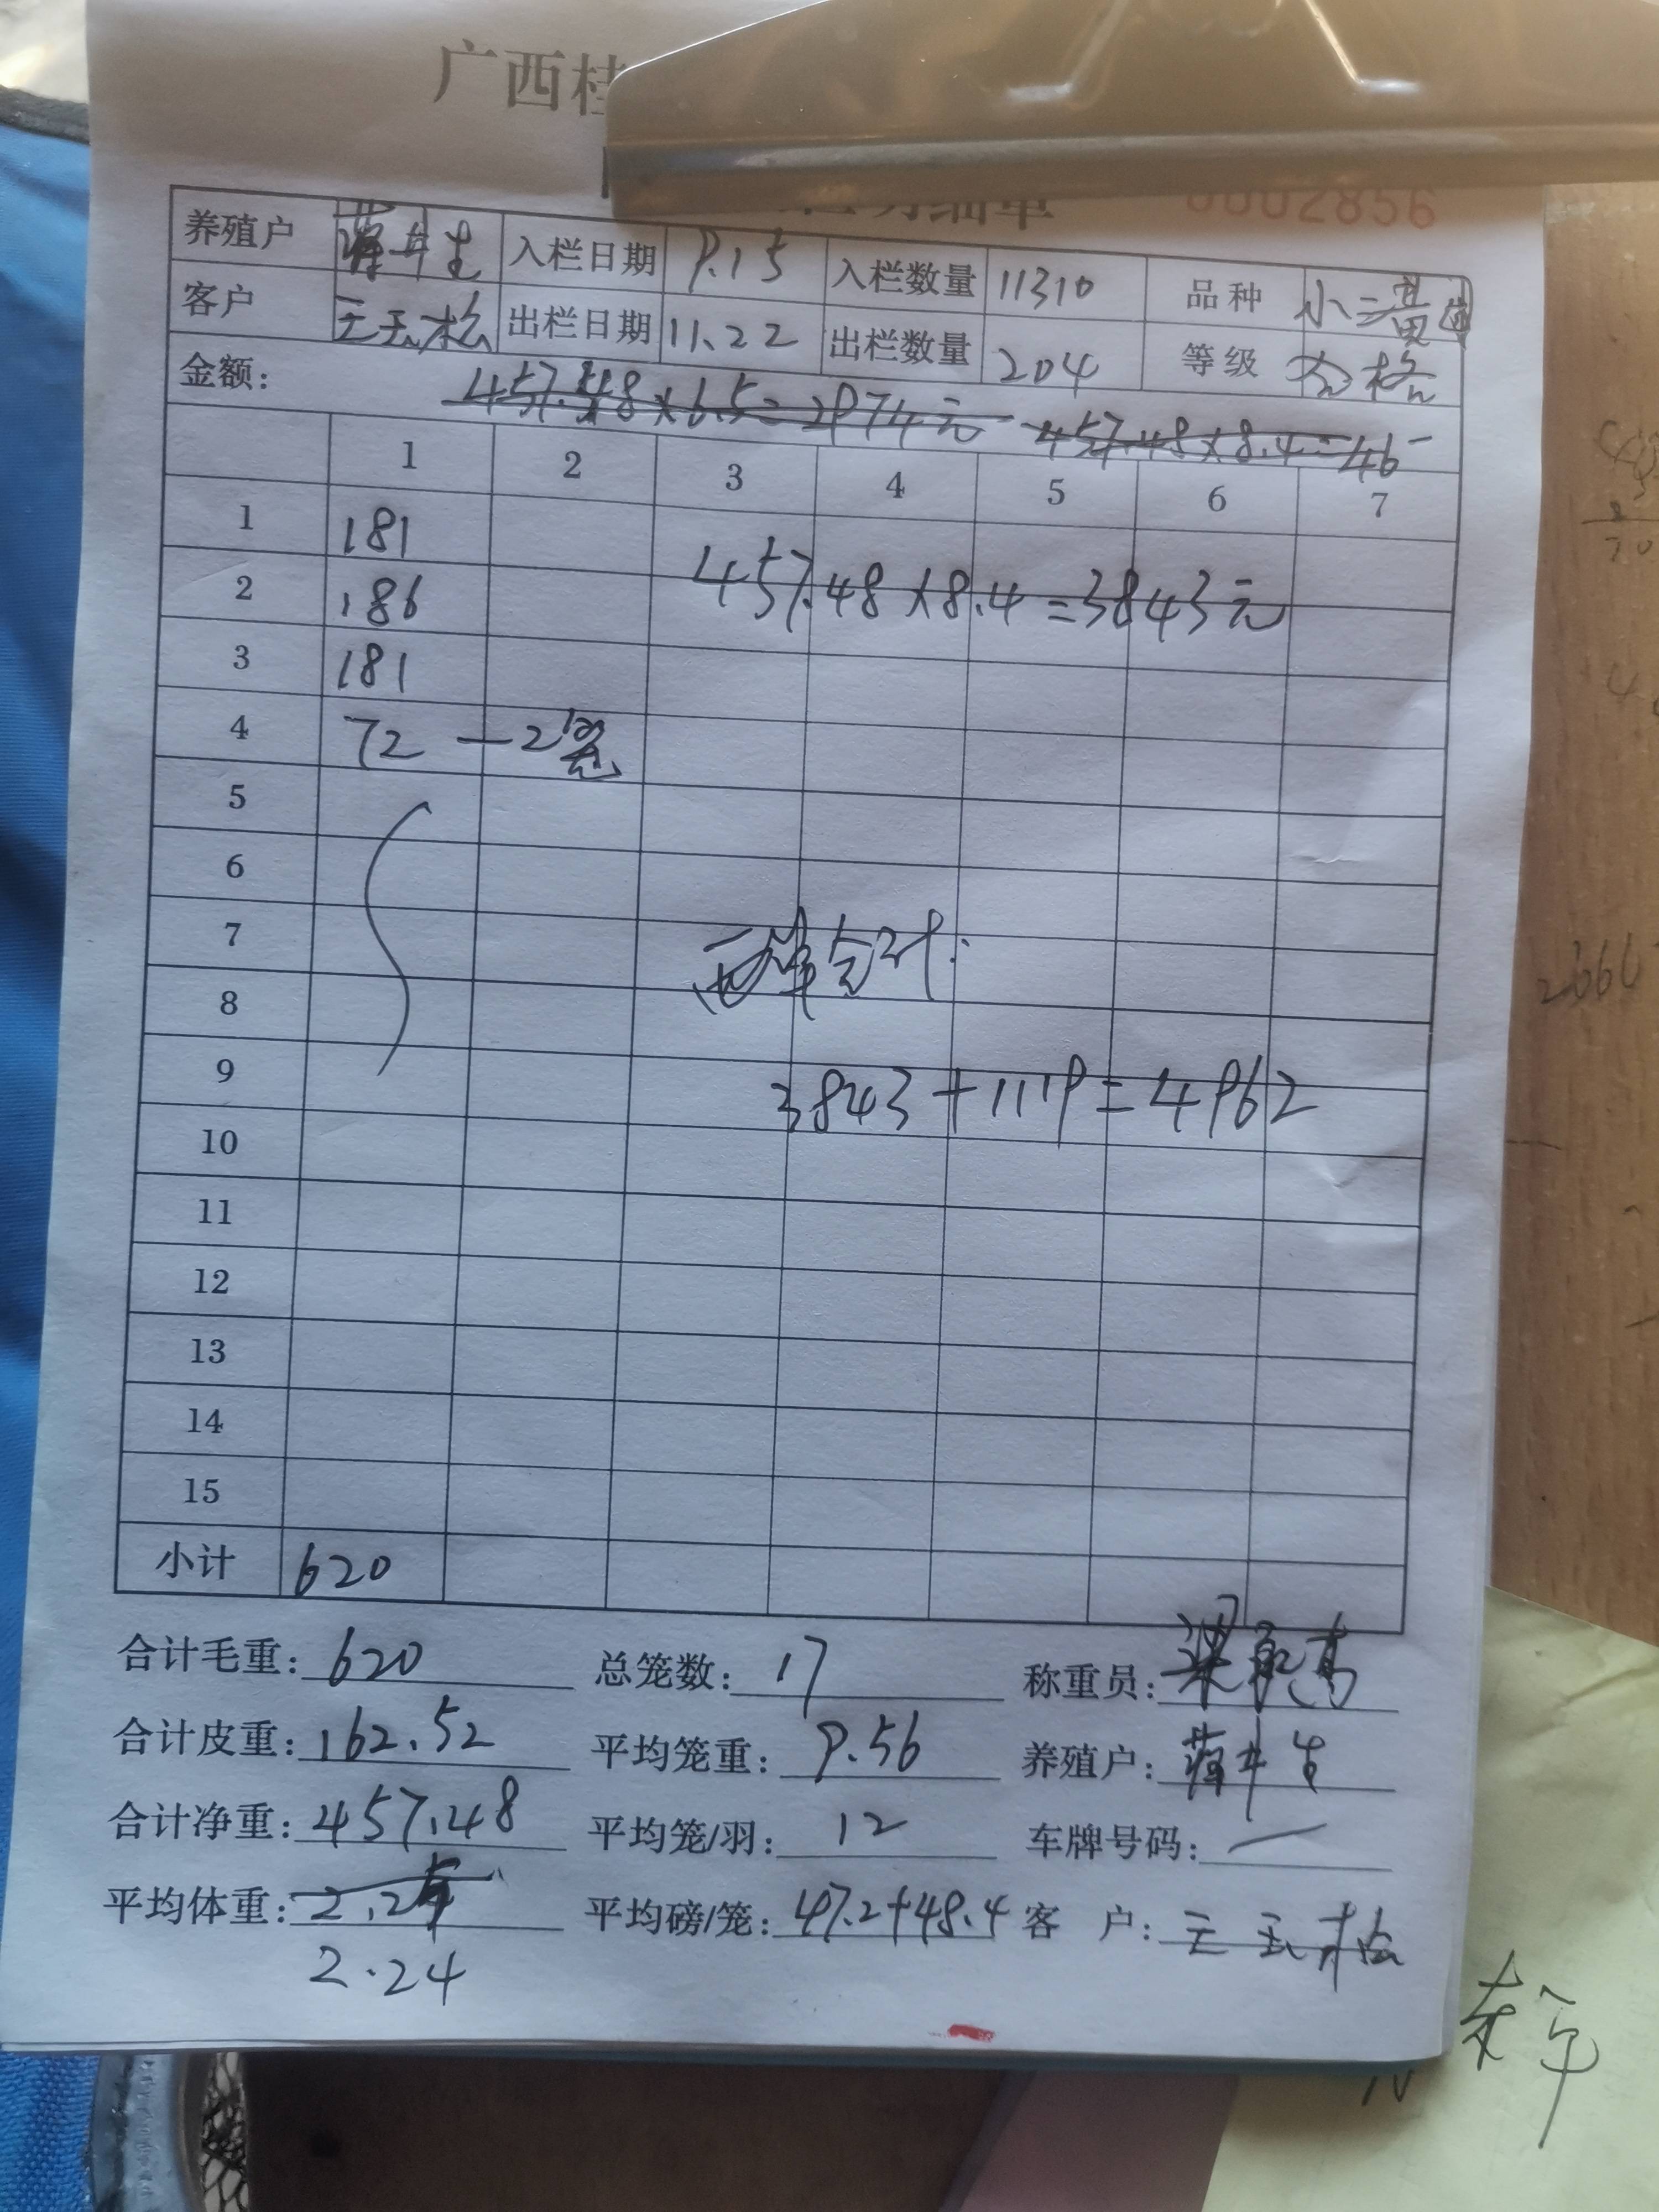 广西桂
细单 0002856
养殖户 蒋井生 入栏日期 9.15 入栏数量 11310 品种 小二黄
客户 王玉松 出栏日期 11.22 出栏数量 204 等级 合格
金额: 457.48×6.5=2974元 457.48×8.4=46
1 2 3 4 5 6 7
1 181
457.48×8.4=3843元
2 186
3 181
4 72 —2笼
5
6
7
两单合计:
8
9
3843+1119=4962
10
11
12
13
14
15
小计 620
合计毛重: 620 总笼数: 17 称重员:
合计皮重: 162.52 平均笼重: 9.56 养殖户: 蒋井生
合计净重: 457.48 平均笼/羽: 12 车牌号码: —
平均体重: 平均磅/笼: 47.2+48.4 客 户: 王玉松
2.24